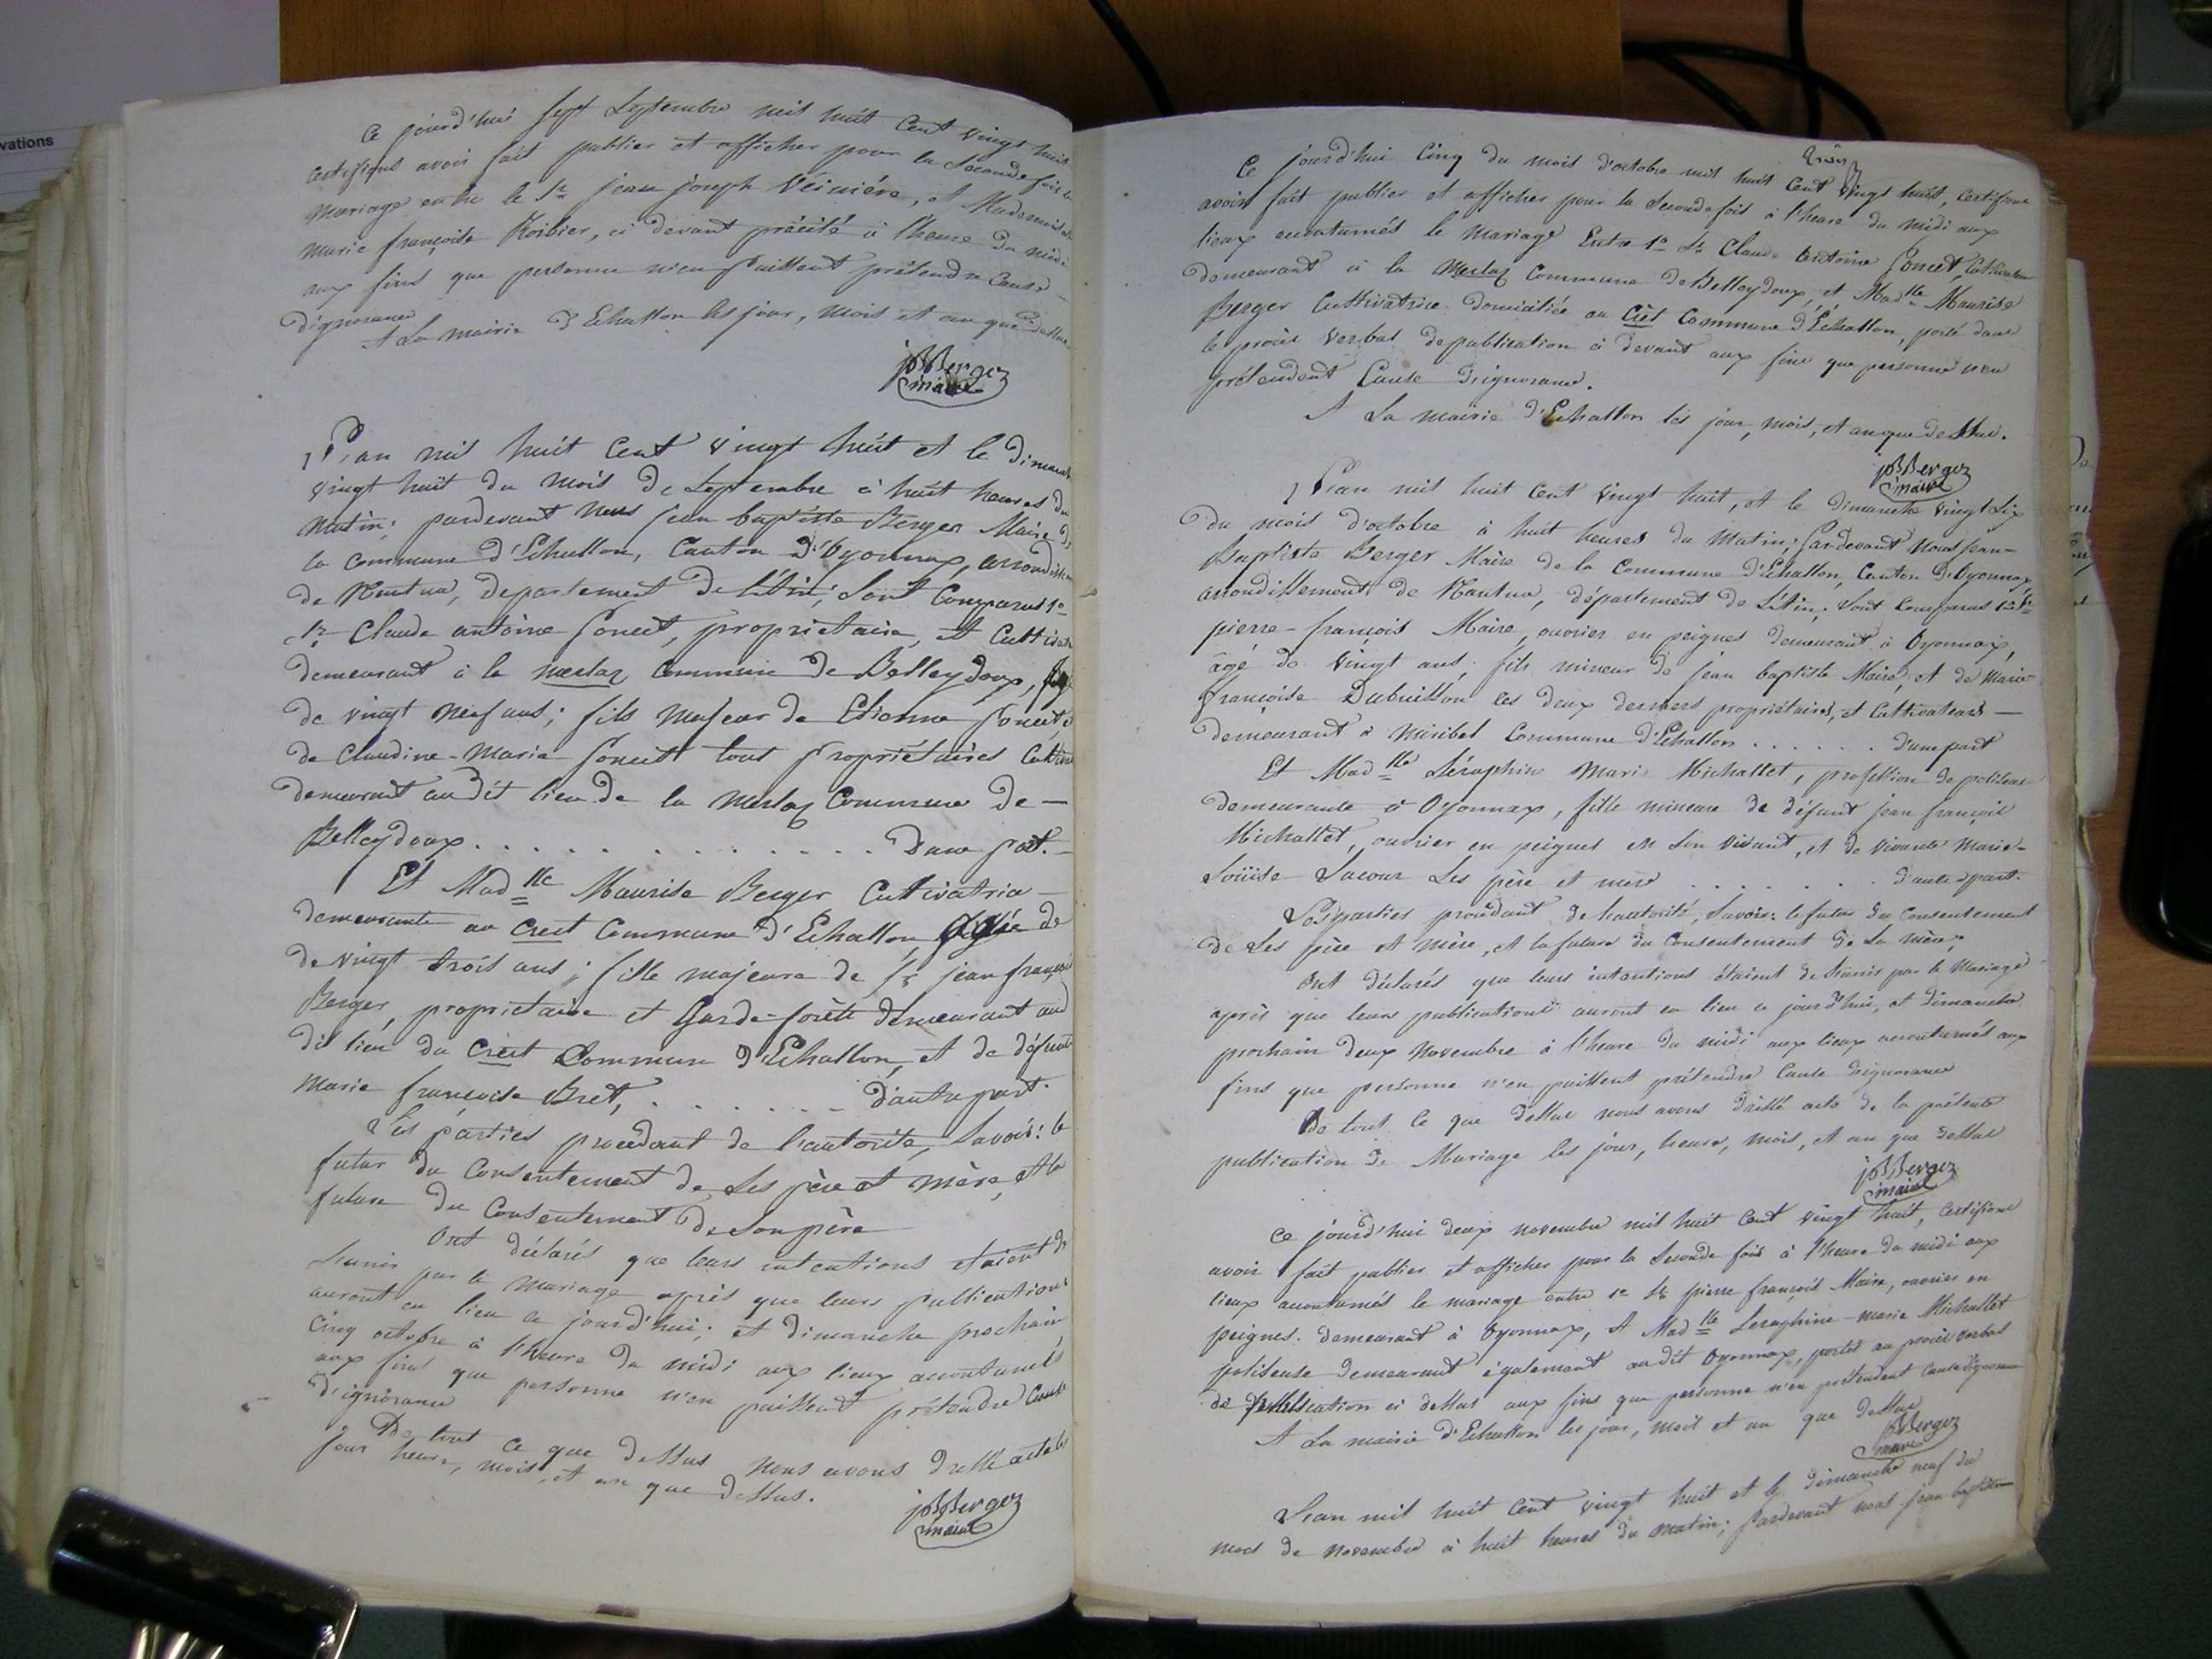 vations
Ce jourd'hui sept Septembre mil huit Cent vingt huit
Certifions avoir fait publier et afficher pour la Seconde fois le
mariage entre le Sr jean joseph , et Mademoiselle
marie françoise , ci devant précité à l'heure du midi
aux fins que personne n'en puissent prétendre Cause
d'ignorance
A La mairie d'Echallon les jour, mois et an que dessus
jBBerger
maire
L'an mil huit Cent vingt huit et le dimanche
vingt huit du mois de Septembre à huit heures du
matin; pardevant Nous jean baptiste Berger Maire de
la Commune d'Echallon, Canton d'Oyonnax, arrondissem
de Nantua, departement de L'Ain; Sont Comparus 1o
Sr Claude antoine Poncet, propriétaire, et Cultivateur
demeurant à la merlaz Commune de Belleydoux,
de vingt neuf ans; fils majeur de Etienne Poncet, et
de Claudine-Marie Poncet tous propriétaires Cultiv
demeurant audit lieu de la merlaz Commune de —
Belleydoux . . . . . . . . . . . . . . d'une part. —
Et Mad lle Maurise Berger Cultivatrice —
demeurante au Crest Commune d'Echallon, âgée de
de vingt trois ans; fille majeure de Sr jean françois
Berger, propriétaire et Garde-forêts demeurant aud
dit lieu du Crest Commune d'Echallon, et de défunte
Marie françoise Bret, . . . . . . . d'autre part.
Les parties procédant de l'autorité, Savoir: le
futur du Consentement de Ses père et mère, et la
future du Consentement de Son père
Ont déclarés que leurs intentions étaient de
S'unir par le mariage après que leurs publications
auront eu lieu ce jourd'hui; et dimanche prochain
Cinq octobre à l'heure du midi aux lieux accoutumés
aux fins que personne n'en puissent prétendre Cause
d'ignorance
De tout ce que dessus nous avons dressé acte les
jour heure, mois, et an que dessus.
jBBerger
maire
Ce jourd'hui Cinq du mois d'octobre mil huit Cent vingt huit, Certifions
avoir fait publier et afficher pour la Seconde fois à l'heure du midi aux
lieux accoutumés le mariage Entre 1o Sr Claude Antoine Poncet, Cultivateur
demeurant à la Merlaz Commune de Belleydoux, et Mad lle Maurise
Berger Cultivatrice domiciliée au Crêt Commune d'Echallon, porté dans
le procès verbal de publication ci devant aux fins que personne n'en
prétendent Cause d'ignorance.
A La mairie d'Echallon les jour, mois, et an que dessus.
jBBerger
maire
L'an mil huit Cent vingt huit, et le dimanche vingt Six
du mois d'octobre à huit heures du matin; Pardevant Nous jean-
Baptiste Berger Maire de la Commune d'Echallon, Canton d'Oyonnax,
arrondissement de Nantua, département de L'Ain; Sont Comparus 1o Sr
pierre-françois Maire, ouvrier en peignes demeurant à Oyonnax,
âgé de vingt ans; fils mineur de jean baptiste Maire, et de Marie-
françoise Dubuisson les deux derniers propriétaires, et Cultivateurs —
demeurant à Miribel Commune d'Echallon . . . . . . . d'une part
Et Mad lle Séraphine Marie Michallet, profession de poliseuse
demeurante à Oyonnax, fille mineure de défunt jean françois
Michallet, ouvrier en peignes en Son vivant, et de vivante Marie-
Loüise Lacour Ses père et mère . . . . . . . . d'autre part.
Les parties procédant de l'autorité, Savoir: le futur du Consentement
de Ses père et mère, et la future du Consentement de Sa mère;
Ont déclarés que leurs intentions étaient de S'unir par le Mariage
après que leurs publications auront eu lieu ce jourd'hui, et dimanche
prochain deux novembre à l'heure du midi aux lieux accoutumés aux
fins que personne n'en puissent prétendre Cause d'ignorance
De tout Ce que dessus nous avons dressé acte de la présente
publication de Mariage les jour, heure, mois, et an que dessus
jBBerger
maire
Ce jourd'hui deux novembre mil huit Cent vingt huit, Certifions
avoir fait publier et afficher pour la Seconde fois à l'heure du midi aux
lieux accoutumés le mariage entre 1o Sr pierre françois Maire, ouvrier en
peignes demeurant à Oyonnax, et Mad lle Seraphine-marie Michallet
poliseuse demeurant également audit Oyonnax, portés au procès verbal
de publication ci dessus aux fins que personne n'en prétendent Cause d'ignorance
A La mairie d'Echallon les jour, mois et an que dessus
jBBerger
maire
L'an mil huit Cent vingt huit et le dimanche neuf du
mois de novembre à huit heures du matin; pardevant nous jean baptiste